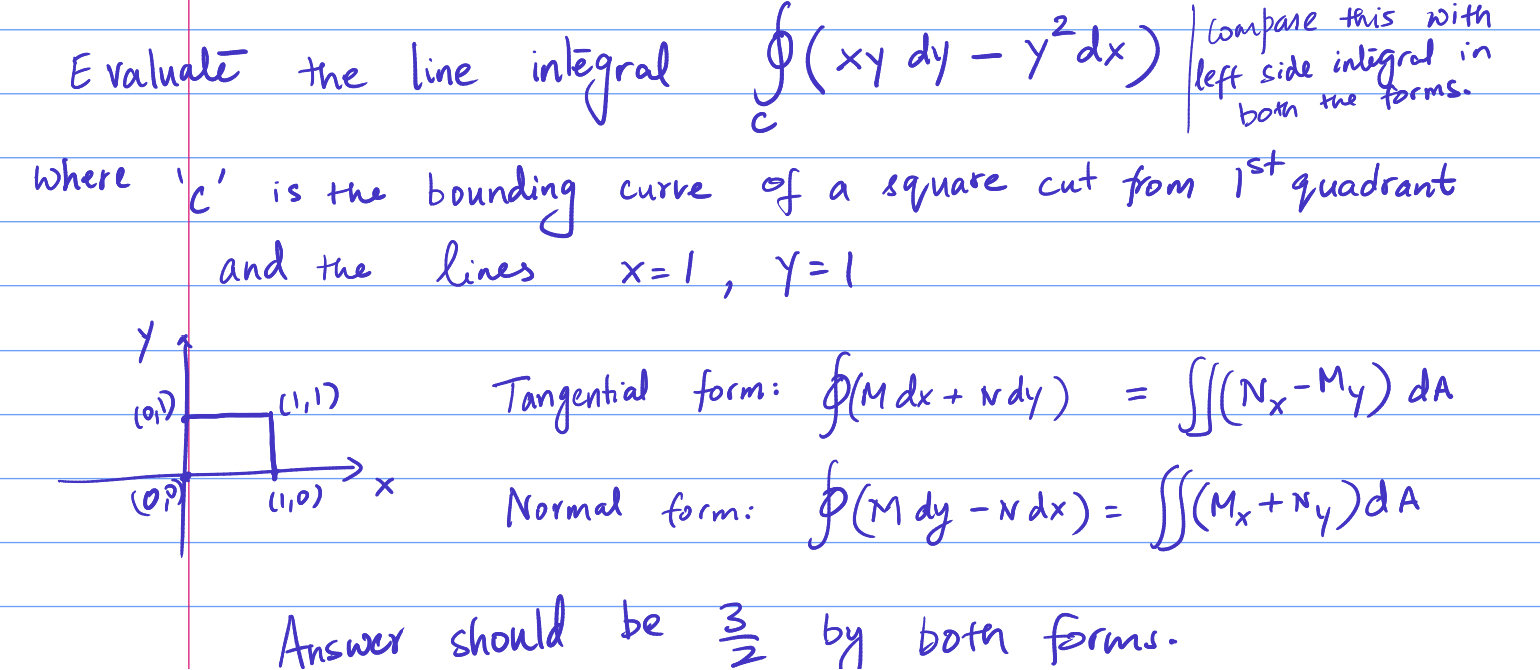 Evaluate the line integral ∮_C (xy dy − y² dx) | Compare this with
left side integral in
both the forms.
where 'C' is the bounding curve of a square cut from 1st quadrant
and the lines x=1, y=1
y
(0,1) (1,1)
Tangential form: ∮(M dx + N dy) = ∬(Nx − My) dA
(0,0) (1,0) x
Normal form: ∮(M dy − N dx) = ∬(Mx + Ny) dA
Answer should be 3/2 by both forms.